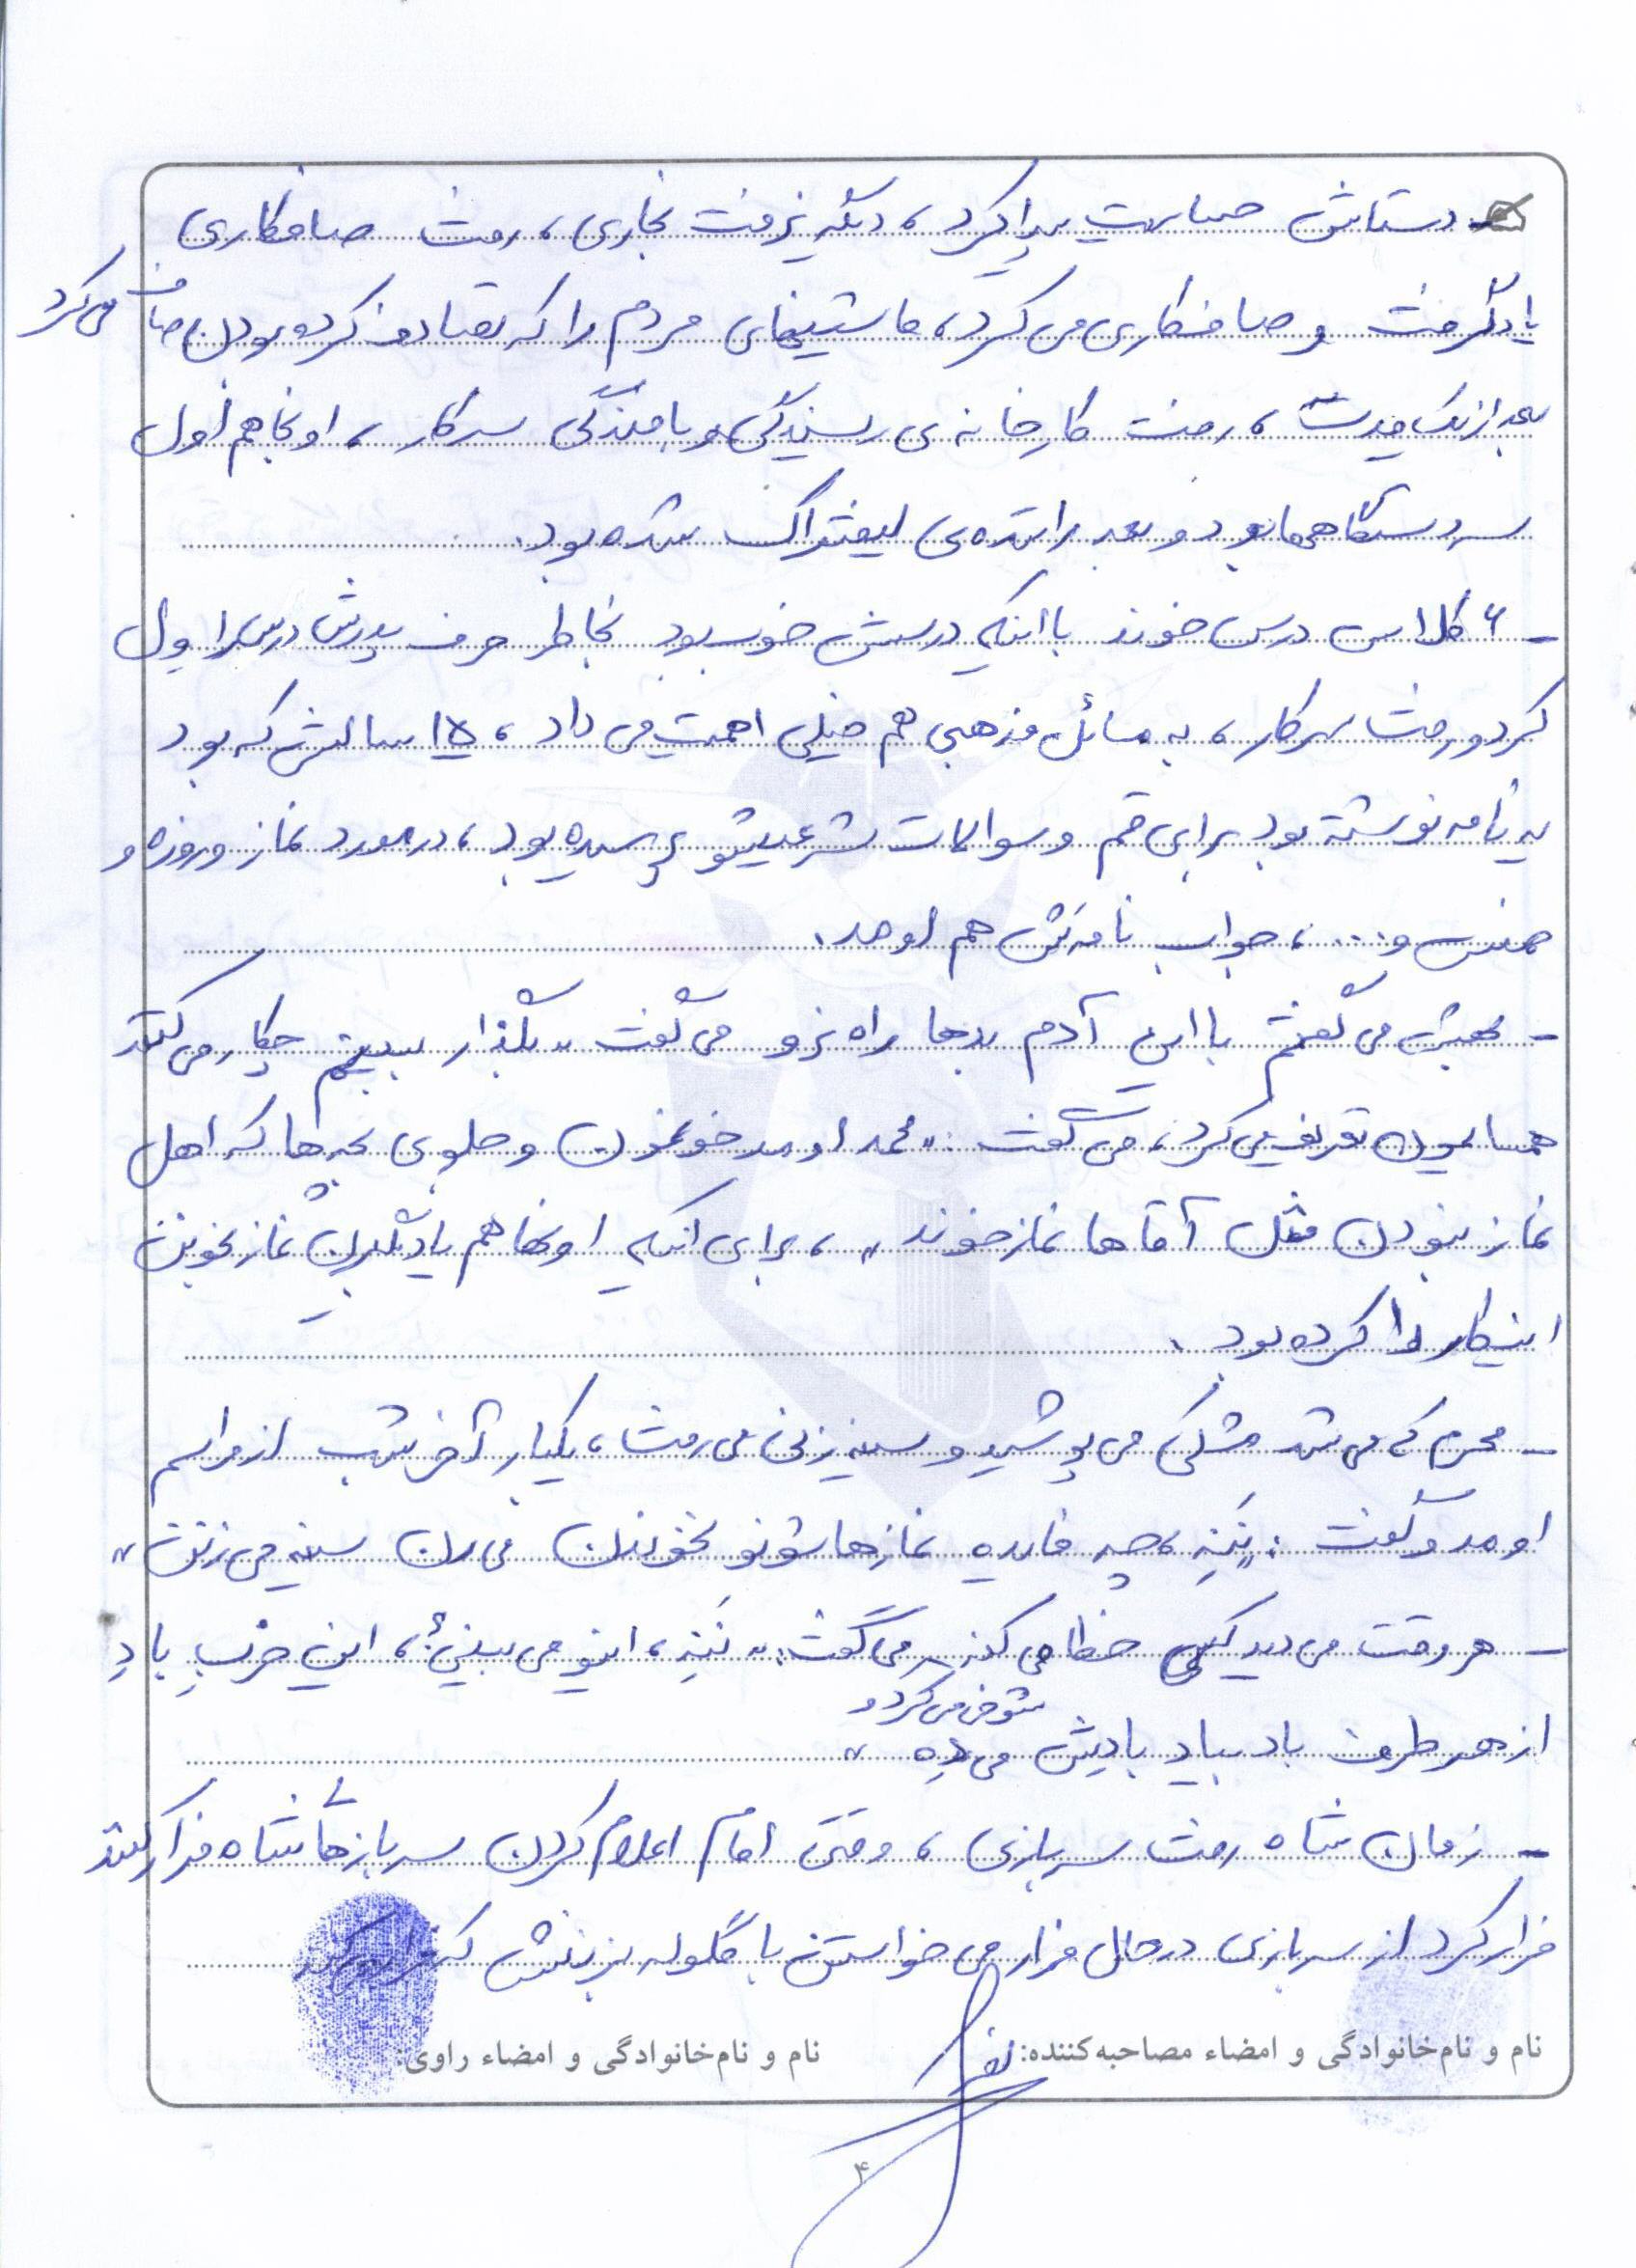 - دستاش حساسیت پیدا کرد، دیگه نرفت نجاری، رفت صافکاری
یادگرفت و صافکاری می‌کرد، ماشینهای مردم را که تصادف کرده بودن صاف می‌کرد
بعد از یک مدت، رفت کارخانه‌ی ریسندگی و بافندگی سرکار، اونجا هم اول
سر دستگاهها بود و بعد راننده‌ی لیفتراک شده بود.
- ۶ کلاس درس خوند با اینکه درسش خوب بود بخاطر حرف پدرش درس را ول
کرد و رفت سرکار، به مسائل مذهبی هم خیلی اهمیت می‌داد، ۱۵ سالش که بود
یه نامه نوشته بود برای قم و سوالات شرعیشو پرسیده بود، در مورد نماز و روزه و
خمس و...، جواب نامه‌ش هم اومد.
- بهش می‌گفتم با این آدم بدها راه نرو می‌گفت "بگذار ببینم چکار می‌کنند
همسایمون تعریف می‌کرد، می‌گفت: "محمد اومد خونمون و جلوی بچه‌ها که اهل
نماز نبودن مثل آقاها نماز خوند"، برای اینکه اونها هم یاد بگیرن نماز بخونن
اینکار را کرده بود.
- محرم که می‌شد مشکی می‌پوشید و سینه زنی می‌رفت، یکبار آخر شب از مراسم
اومد و گفت: "ننه، چه فایده نمازهاشونو نخوندن می‌رن سینه می‌زنن"
- هر وقت می‌دید کسی خطا می‌کنه می‌گفت: "ننه، اینو می‌بینی؟، این حزب بادِ
شوخی می‌کرد و
از هر طرف باد بیاد بادیش می‌ده"
- زمان شاه رفت سربازی، وقتی امام اعلام کردن سربازها شاه فرار کنند
فرار کرد از سربازی در حال فرار می‌خواستن با گلوله بزننش که
نام و نام‌خانوادگی و امضاء مصاحبه‌کننده:
نام و نام‌خانوادگی و امضاء راوی:
۴